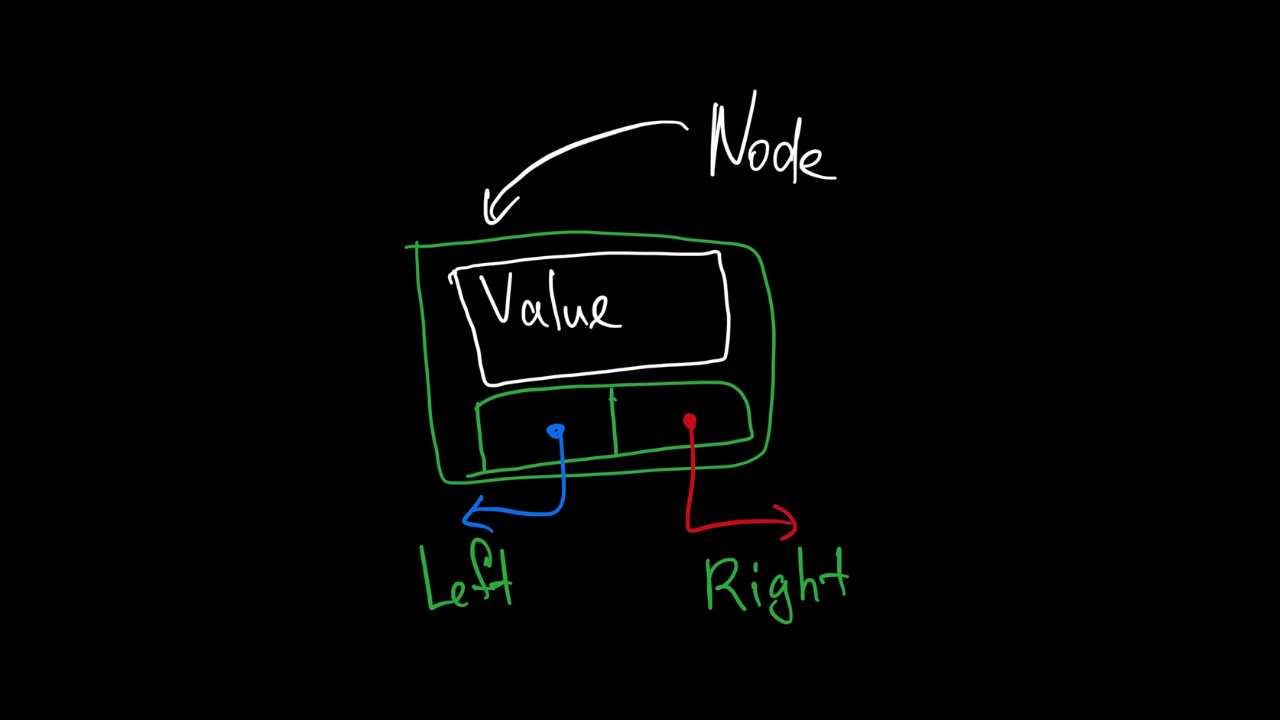 Node
Value
Left
Right